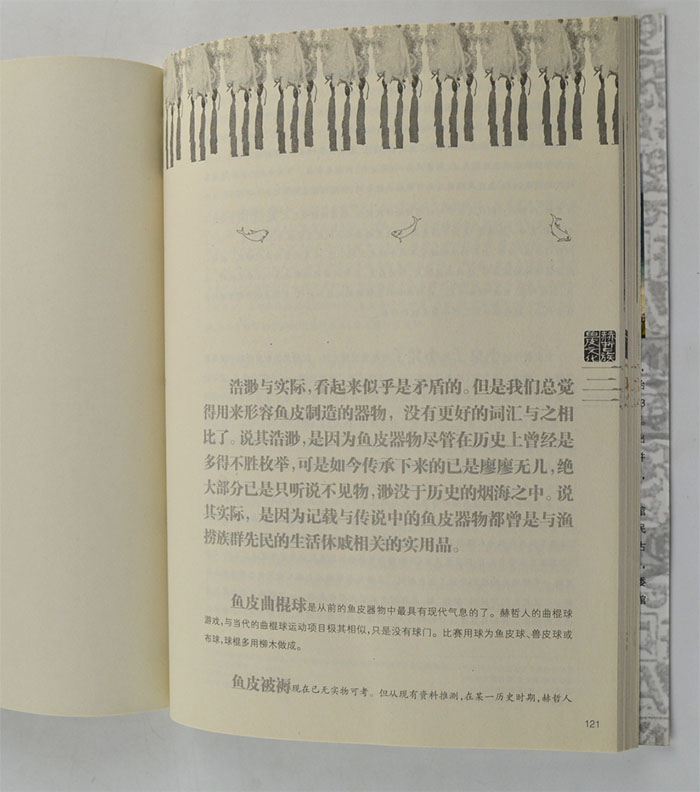 赫哲民族
鱼皮文化
浩渺与实际，看起来似乎是矛盾的。但是我们总觉
得用来形容鱼皮制造的器物，没有更好的词汇与之相
比了。说其浩渺，是因为鱼皮器物尽管在历史上曾经是
多得不胜枚举，可是如今传承下来的已是廖廖无几，绝
大部分已是只听说不见物，渺没于历史的烟海之中。说
其实际，是因为记载与传说中的鱼皮器物都曾是与渔
捞族群先民的生活休戚相关的实用品。
鱼皮曲棍球是从前的鱼皮器物中最具有现代气息的了。赫哲人的曲棍球
游戏，与当代的曲棍球运动项目极其相似，只是没有球门。比赛用球为鱼皮球、兽皮球或
布球，球棍多用柳木做成。
鱼皮被褥现在已无实物可考。但从现有资料推测，在某一历史时期，赫哲人
121